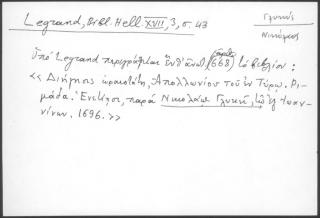 Legrand, Bibl. Hell. XVII, 3, σ. 43
Γλυκύς
Νικόλαος
Ὑπὸ Legrand περιγράφεται ἐνθ' ἀνωτ. (ἀριθ. 668) τὸ βιβλίον:
«Διήγησις ὡραιοτάτη, Ἀπολλωνίου τοῦ ἐν Τύρῳ. Ρι-
μάδα. Ἐνετίησι, παρὰ Νικολάῳ Γλυκεῖ, τῷ ἐξ Ἰωαν-
νίνων. 1696.»